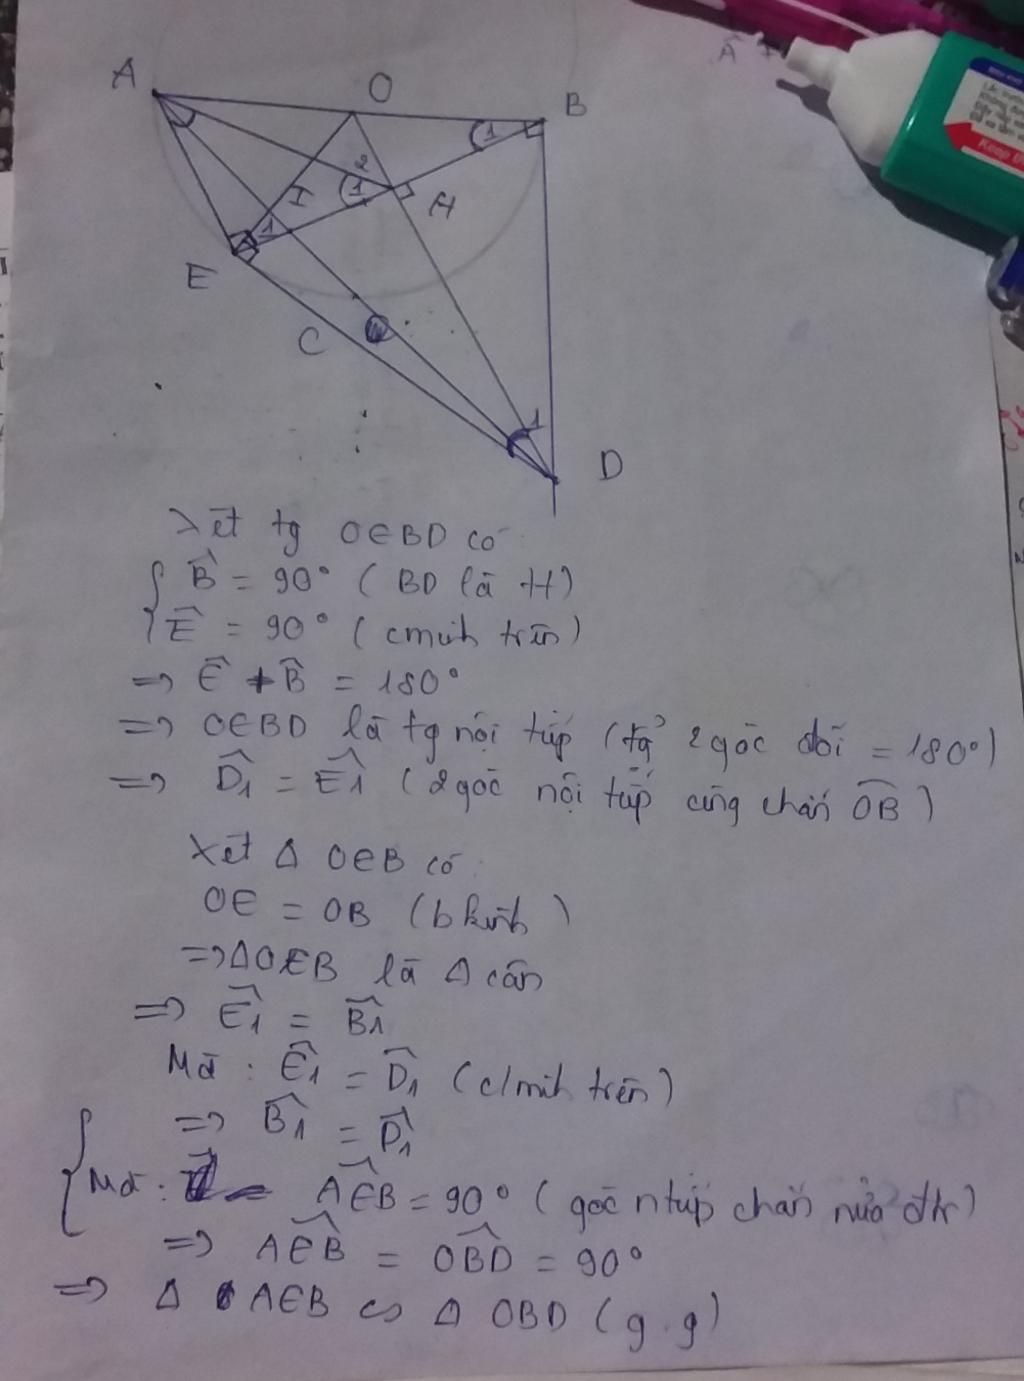 A
O
B
1
2
1
I
H
1
E
C
1
D
Xét tg OEBD có
B̂ = 90° ( BD là tt)
Ê = 90° ( cminh trên)
=> Ê + B̂ = 180°
=> OEBD là tg nội tiếp (tg 2 góc đối = 180°)
=> D̂1 = Ê1 ( 2 góc nội tiếp cùng chắn OB )
Xét Δ OEB có
OE = OB (b kính )
=> ΔOEB là Δ cân
=> Ê1 = B̂1
Mà : Ê1 = D̂1 (c/minh trên)
=> B̂1 = D̂1
Mà : AÊB = 90° ( góc n tiếp chắn nửa đtr)
=> AÊB = OB̂D = 90°
=> Δ AEB ∽ Δ OBD ( g . g )
Keep